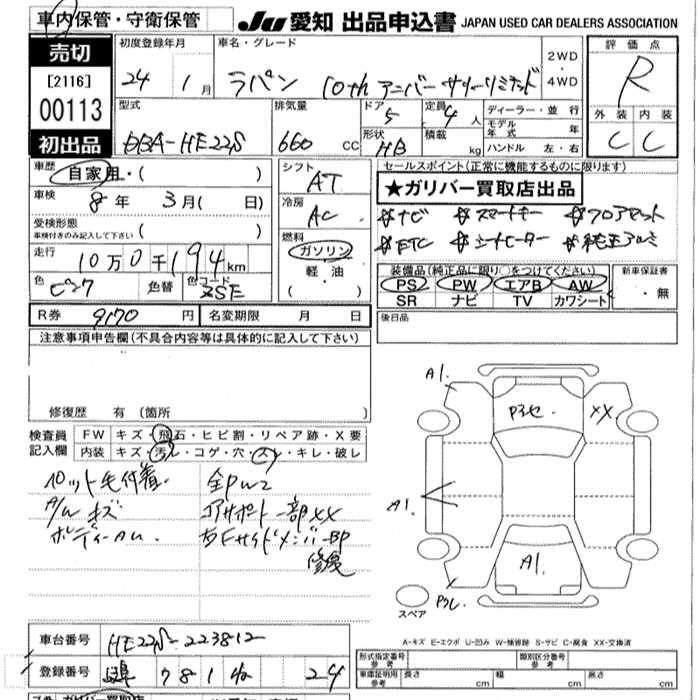 車内保管・守衛保管
JU 愛知 出品申込書 JAPAN USED CAR DEALERS ASSOCIATION
売切
[2116]
00113
初出品
初度登録年月
24 1月
車名・グレード
ラパン 10th アニバーサリーリミテッド
2WD・4WD
評価点
R
外装 内装
C C
型式
DBA-HE22S
排気量
660 CC
ドア
5
形状
HB
定員
4人
積載
kg
ディーラー・並行
モデル年式 年
ハンドル 左・右
車歴
自家用・( )
車検
8年 3月( 日)
受検形態
車検付きのみ記入して下さい ( )
走行
10万0千194km
色
色替
色コード
ZSE
シフト
AT
冷房
AC
燃料
ガソリン
軽油
・( )
セールスポイント(正常に機能するものに限ります)
★ガリバー買取店出品
#ナビ #スマートキー #フロアマット
#ETC #シートヒーター #純正アルミ
装備品(純正品に限り○をつけてください)
PS PW エアB AW
SR ナビ TV カワシート
新車保証書
・無
R券 9170円
名変期限 月 日
後日品
注意事項申告欄(不具合内容等は具体的に記入して下さい)
修復歴 有 [箇所 ]
検査員記入欄
FW キズ・飛石・ヒビ割・リペア跡・X要
内装 キズ・汚レ・コゲ・穴・スレ・キレ・破レ
A/W キズ
コアサポート一部XX
右Fサイドメンバー
修復
A1.
XX
A1.
A1.
スペア
A-キズ E-エクボ U-凹み W-補修跡 S-サビ C-腐食 XX-交換済
車台番号 HE22S-223812
登録番号 781 24
形式指定番号 参考
類別区分番号 参考
車庫証明用 参考 長さ cm 幅 cm 高さ cm